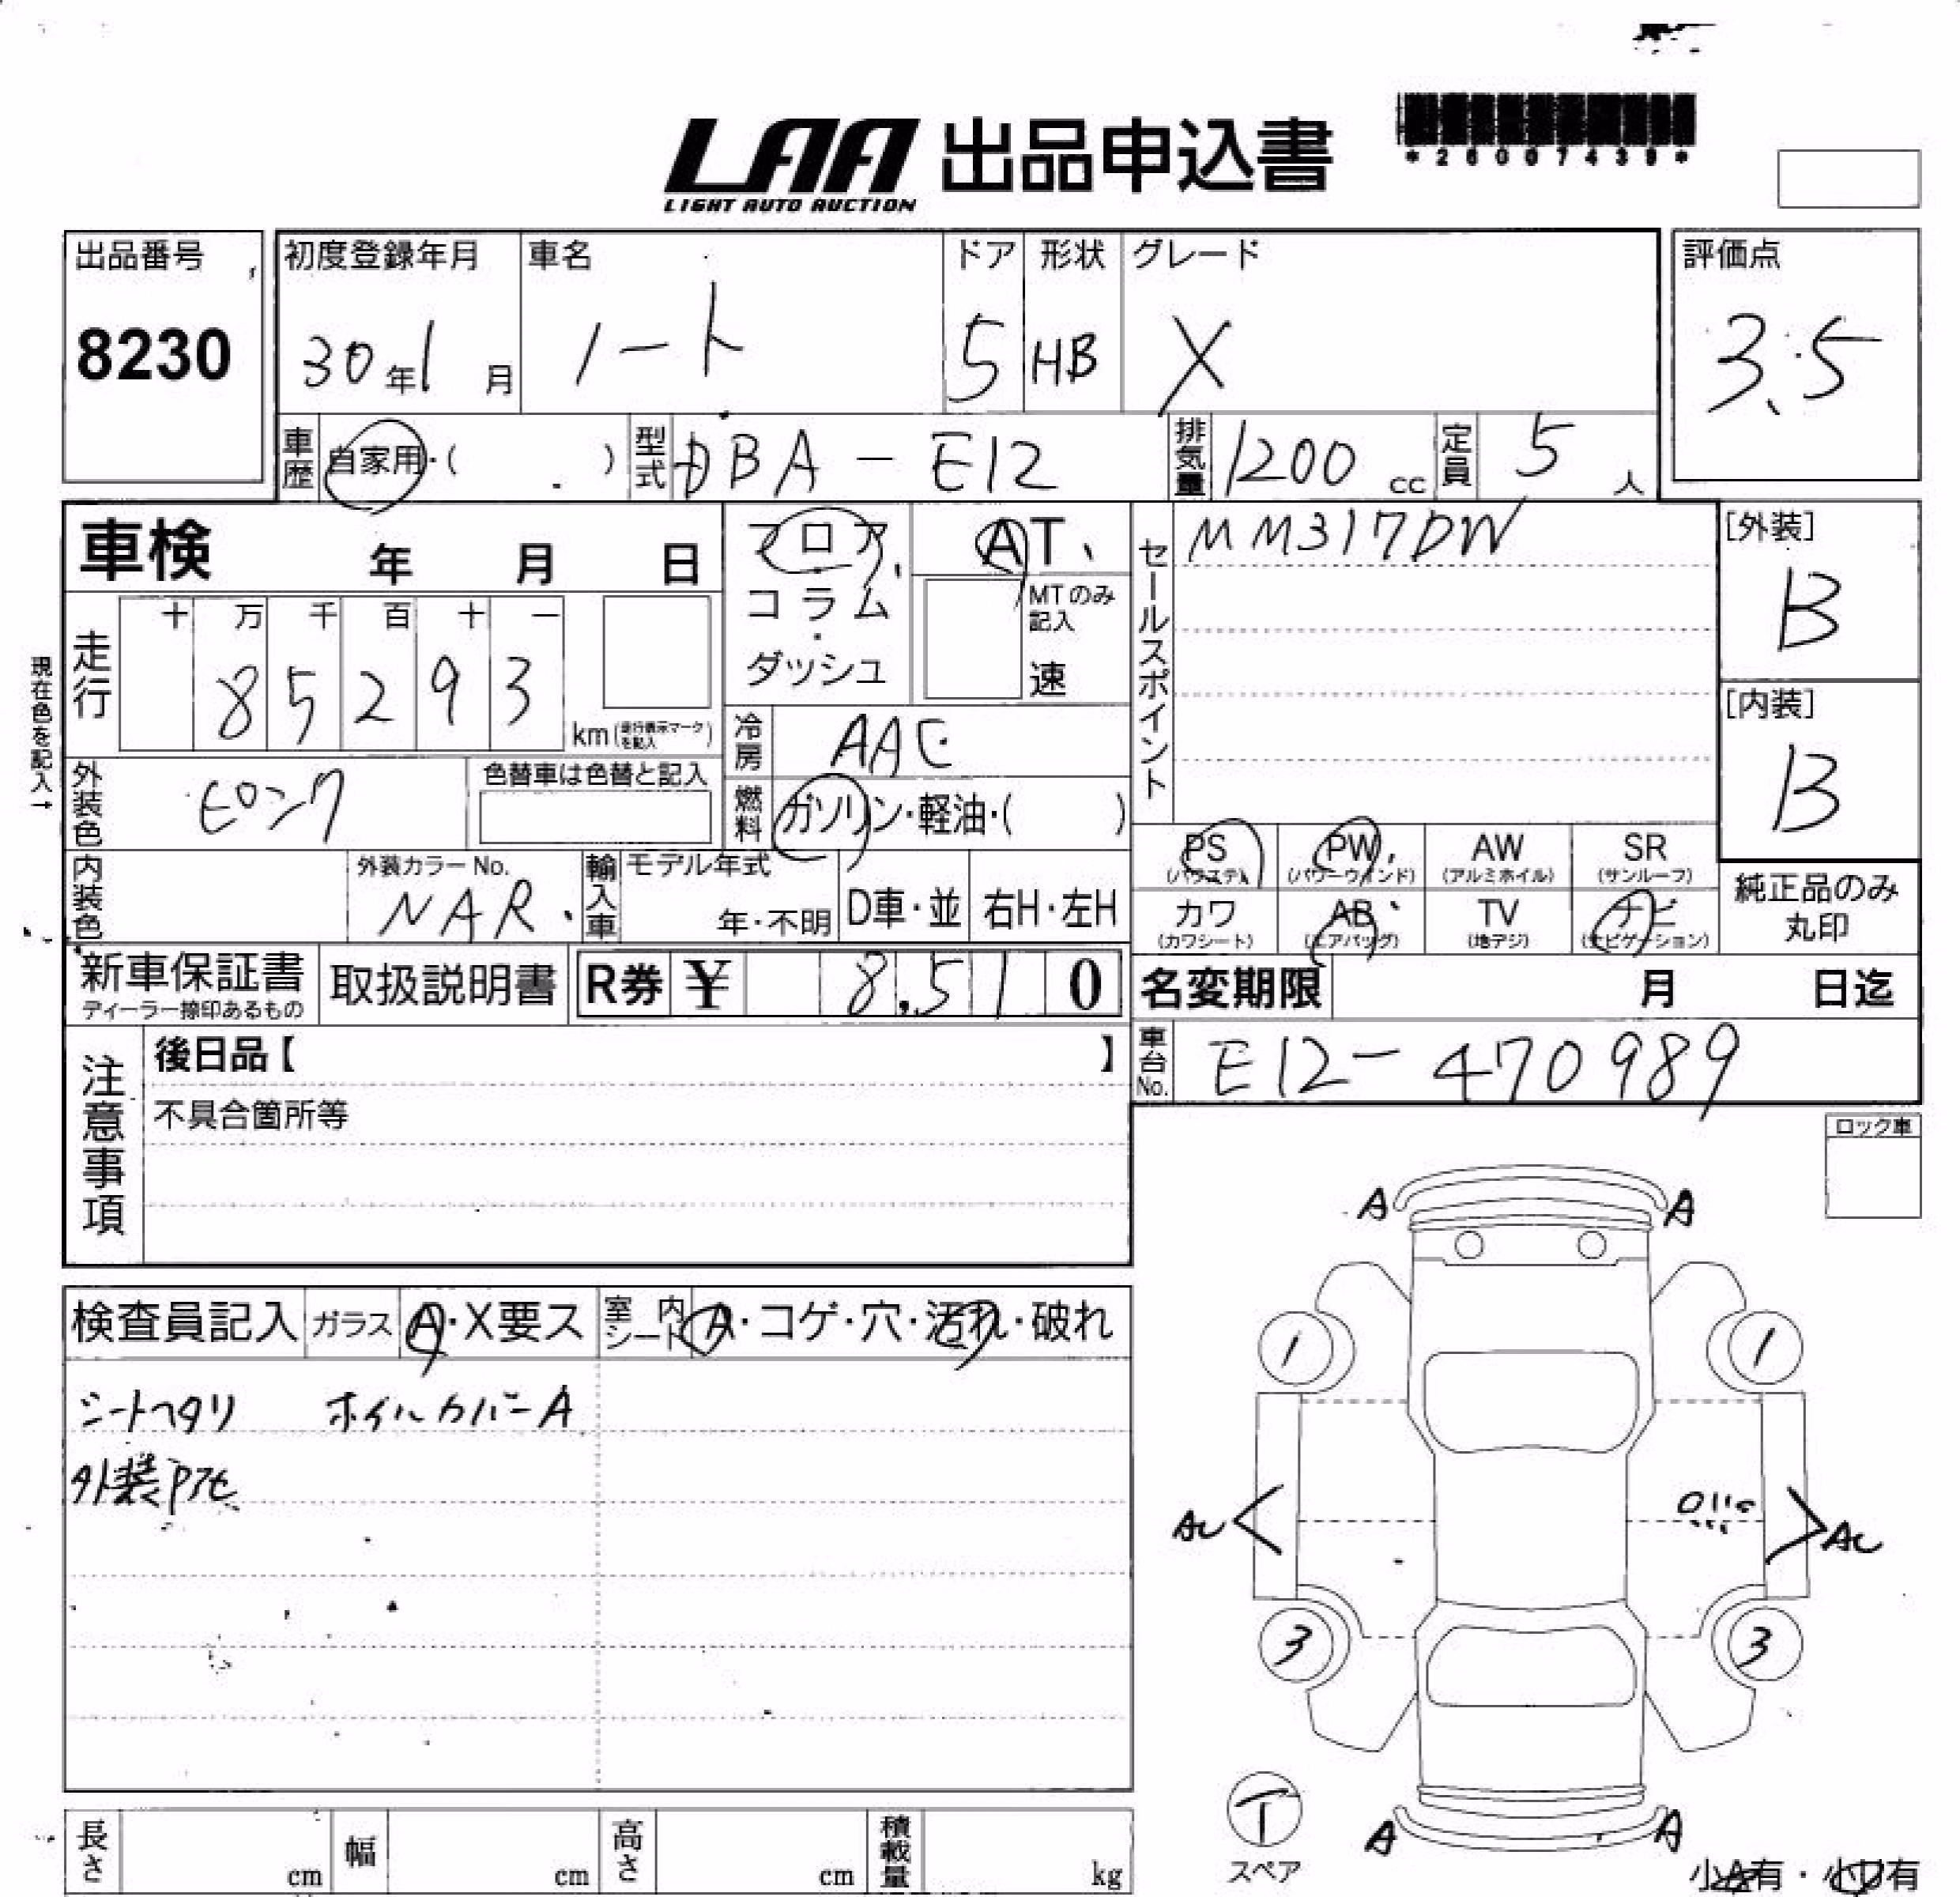 *26007439*
LAA 出品申込書
LIGHT AUTO AUCTION
出品番号
8230
初度登録年月
30年1月
車名
ノート
ドア
5
形状
HB
グレード
X
評価点
3.5
車歴
自家用・( )
型式
DBA-E12
排気量
1200cc
定員
5人
車検 年 月 日
フロア
コラム
・
ダッシュ
AT
MTのみ
記入
速
セールスポイント
MM317DW
[外装]
B
[内装]
B
現在色を記入→
走行
十 万 千 百 十 一
8 5 2 9 3
km(走行表示マークを記入)
冷房
AAC
外装色
ピンク
色替車は色替と記入
燃料
ガソリン・軽油・( )
PS
(パワステ)
PW
(パワーウインド)
AW
(アルミホイル)
SR
(サンルーフ)
内装色
外装カラーNo.
NAR
輸入車
モデル年式
年・不明
D車・並
右H・左H
カワ
(カワシート)
AB
(エアバッグ)
TV
(地デジ)
ナビ
(ナビゲーション)
純正品のみ
丸印
新車保証書
ディーラー捺印あるもの
取扱説明書
R券 ¥ 8,510
名変期限 月 日迄
注意事項
後日品【 】
不具合箇所等
車台No.
E12-470989
ロック車
検査員記入
ガラス
A・X要ス
室内シート
A・コゲ・穴・汚れ・破れ
シートヘタリ ホイルカバーA
外装
A A
1 1
AU AU
3 3
T
スペア
A A
小A有・小U有
長さ cm
幅 cm
高さ cm
積載量 kg